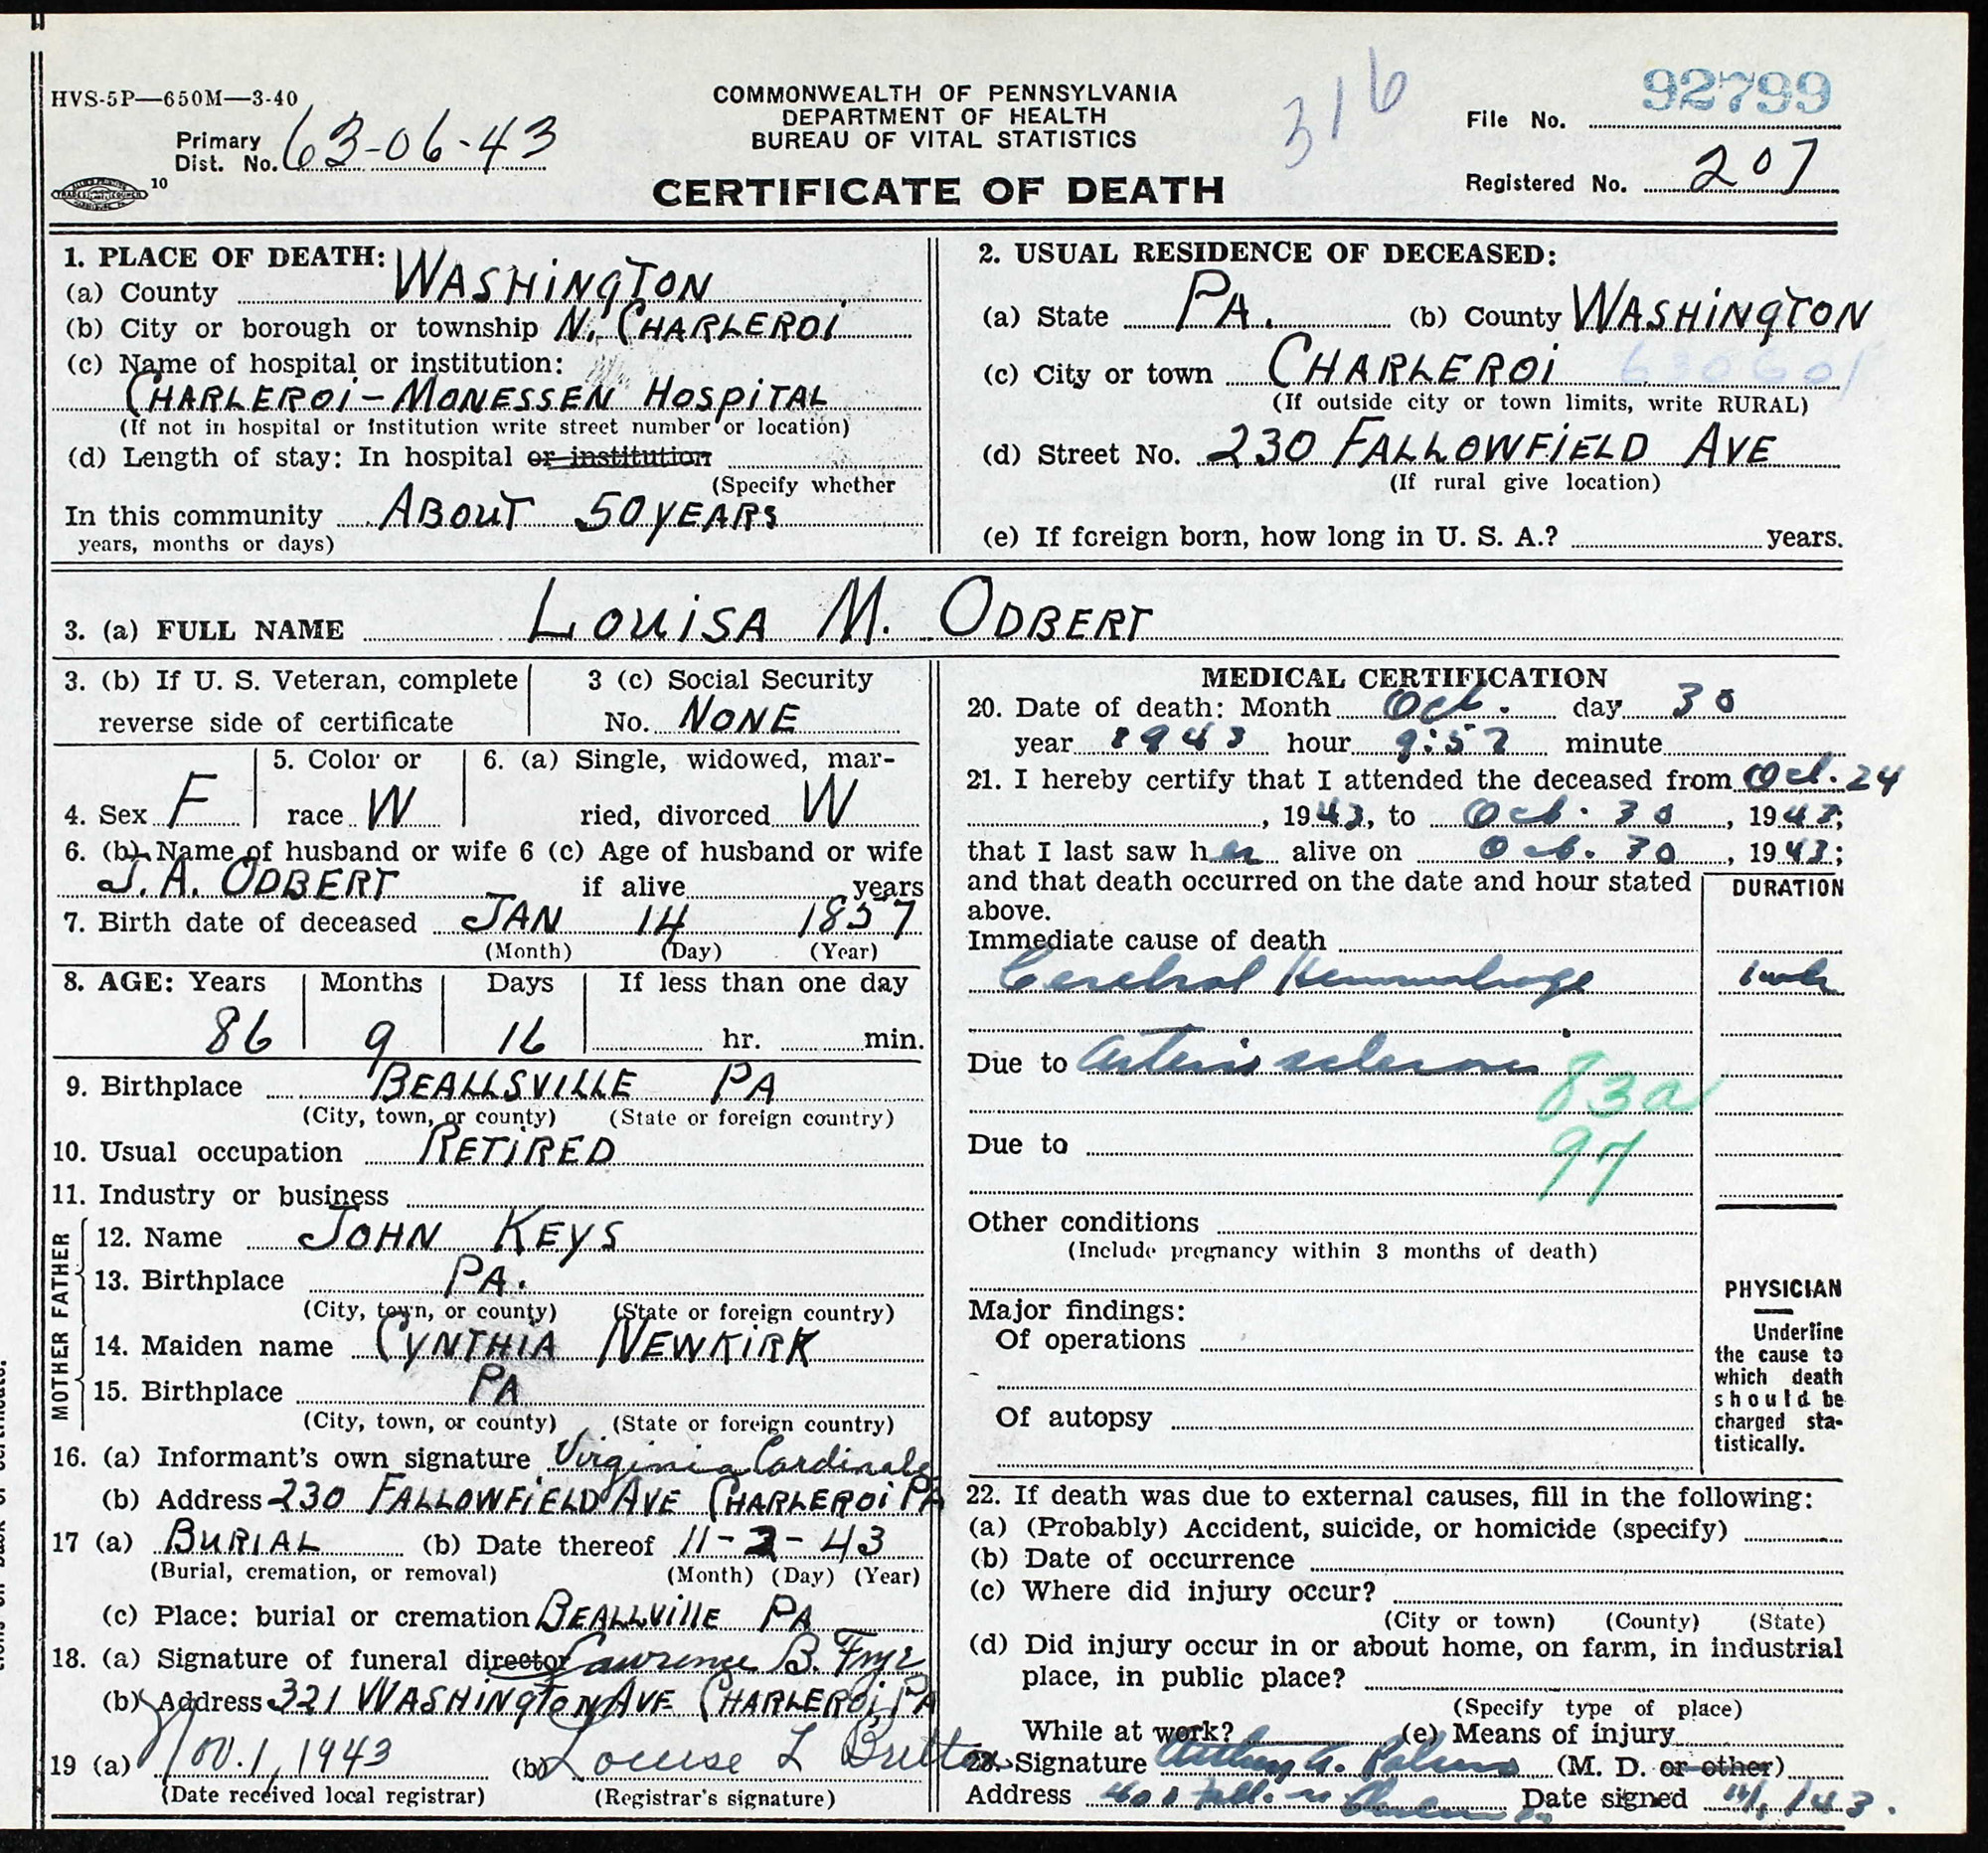 HVS-5P—650M—3-40
COMMONWEALTH OF PENNSYLVANIA
DEPARTMENT OF HEALTH
BUREAU OF VITAL STATISTICS
316
File No. 92799
Primary
Dist. No. 63-06-43
10
CERTIFICATE OF DEATH
Registered No. 207
1. PLACE OF DEATH:
(a) County WASHINGTON
(b) City or borough or township N. CHARLEROI
(c) Name of hospital or institution:
CHARLEROI-MONESSEN HOSPITAL
(If not in hospital or institution write street number or location)
(d) Length of stay: In hospital or institution
(Specify whether
In this community ABOUT 50 YEARS
years, months or days)
2. USUAL RESIDENCE OF DECEASED:
(a) State PA. (b) County WASHINGTON
(c) City or town CHARLEROI 630601
(If outside city or town limits, write RURAL)
(d) Street No. 230 FALLOWFIELD AVE
(If rural give location)
(e) If foreign born, how long in U. S. A.? years.
3. (a) FULL NAME LOUISA M. ODBERT
3. (b) If U. S. Veteran, complete
reverse side of certificate
3 (c) Social Security
No. NONE
4. Sex F
5. Color or
race W
6. (a) Single, widowed, mar-
ried, divorced W
6. (b) Name of husband or wife 6 (c) Age of husband or wife
J. A. ODBERT if alive years
7. Birth date of deceased JAN 14 1857
(Month) (Day) (Year)
8. AGE: Years Months Days If less than one day
86 9 16 hr. min.
9. Birthplace BEALLSVILLE PA
(City, town, or county) (State or foreign country)
10. Usual occupation RETIRED
11. Industry or business
FATHER
12. Name JOHN KEYS
13. Birthplace PA.
(City, town, or county) (State or foreign country)
MOTHER
14. Maiden name CYNTHIA NEWKIRK
15. Birthplace PA
(City, town, or county) (State or foreign country)
16. (a) Informant's own signature Virginia Cardinale
(b) Address 230 FALLOWFIELD AVE CHARLEROI PA
17 (a) BURIAL (b) Date thereof 11-2-43
(Burial, cremation, or removal) (Month) (Day) (Year)
(c) Place: burial or cremation BEALLVILLE PA
18. (a) Signature of funeral director Lawrence B. Frye
(b) Address 321 WASHINGTON AVE CHARLEROI, PA
19 (a) Nov. 1, 1943 (b) Louise L Britton
(Date received local registrar) (Registrar's signature)
MEDICAL CERTIFICATION
20. Date of death: Month Oct. day 30
year 1943 hour 9:57 minute
21. I hereby certify that I attended the deceased from Oct. 24
, 1943, to Oct. 30, 1943;
that I last saw her alive on Oct. 30, 1943;
and that death occurred on the date and hour stated
above.
DURATION
Immediate cause of death
Cerebral Hemmorhage 1 wk
Due to Arterio sclerosis
83a
Due to
97
Other conditions
(Include pregnancy within 3 months of death)
Major findings:
Of operations
Of autopsy
PHYSICIAN
Underline
the cause to
which death
should be
charged sta-
tistically.
22. If death was due to external causes, fill in the following:
(a) (Probably) Accident, suicide, or homicide (specify)
(b) Date of occurrence
(c) Where did injury occur?
(City or town) (County) (State)
(d) Did injury occur in or about home, on farm, in industrial
place, in public place?
(Specify type of place)
While at work? (e) Means of injury
23. Signature (M. D. or other)
Address Date signed 11/1/43.